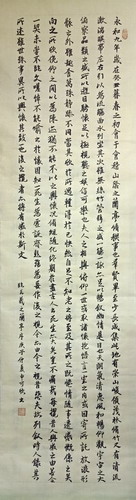 永和九年歲在癸丑暮春之初會于會稽山陰之蘭亭脩稧事也羣賢畢至少長咸集此地有崇山峻領茂林脩竹又有清流
激湍暎帶左右引以為流觴曲水列坐其次雖無絲竹管弦之盛一觴一詠亦足以暢敘幽情是日也天朗氣清惠風和暢仰觀宇宙之大
俯察品類之盛所以遊目騁懷足以極視聽之娛信可樂也夫人之相與俯仰一世或取諸懷抱悟言一室之內或因寄所託放浪形
骸之外雖趣舍萬殊靜躁不同當其欣於所遇暫得於己快然自足不知老之將至及其所之既惓情隨事遷感慨係之矣
向之所欣俛仰之間以為陳迹猶不能不以之興懷況脩短隨化終期於盡古人云死生亦大矣豈不痛哉每攬昔人興感之由若合
一契未嘗不臨文嗟悼不能喻之於懷固知一死生為虛誕齊彭殤為妄作後之視今亦由今之視昔悲夫故列敘時人錄其
所述雖世殊事異所以興懷其致一也後之攬者亦將有感於斯文
王羲之蘭亭序